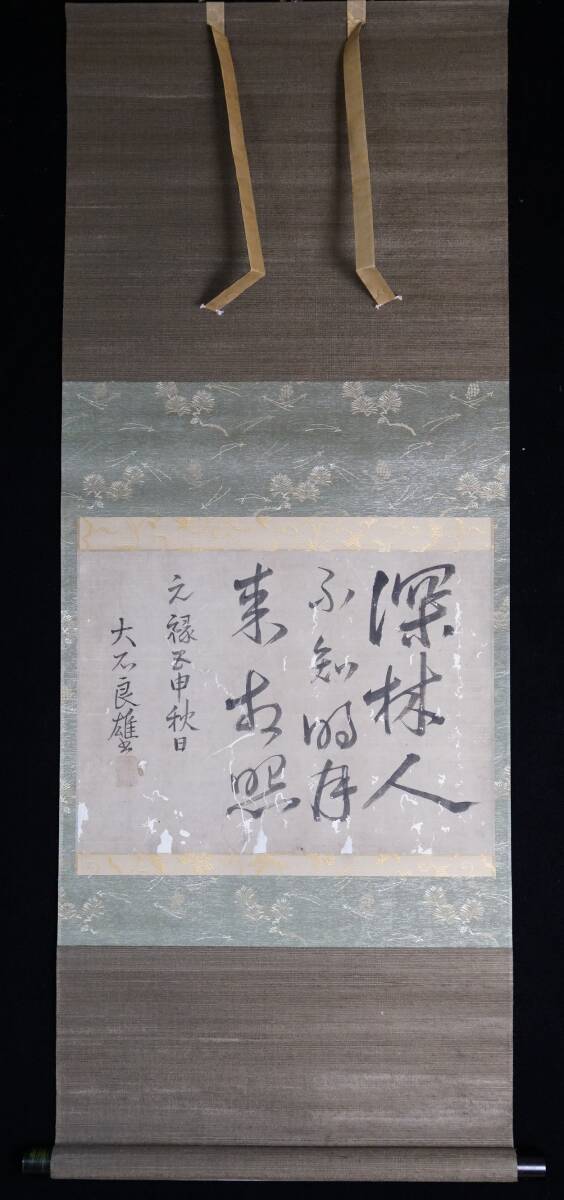 深林人
不知明月
来相照
元禄壬申秋日
大石良雄書